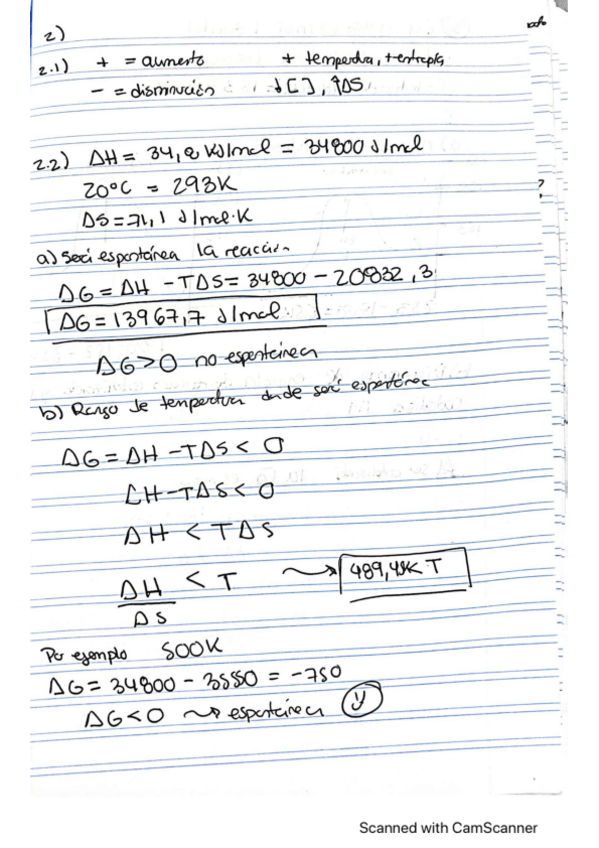 2)
2.1) + = aumento + temperatura, + entropía
- = disminución ↓[ ], ↑ΔS
2.2) ΔH = 34,8 kJ/mol = 34800 J/mol
20°C = 293K
ΔS = 71,1 J/mol·K
a) Será espontánea la reacción
ΔG = ΔH - TΔS = 34800 - 20832,3
ΔG = 13967,7 J/mol
ΔG > 0 no espontánea
b) Rango de temperatura donde será espontánea
ΔG = ΔH - TΔS < 0
ΔH - TΔS < 0
ΔH < TΔS
ΔH/ΔS < T → 489,45K T
Por ejemplo 500K
ΔG = 34800 - 35550 = -750
ΔG < 0 → espontánea
Scanned with CamScanner